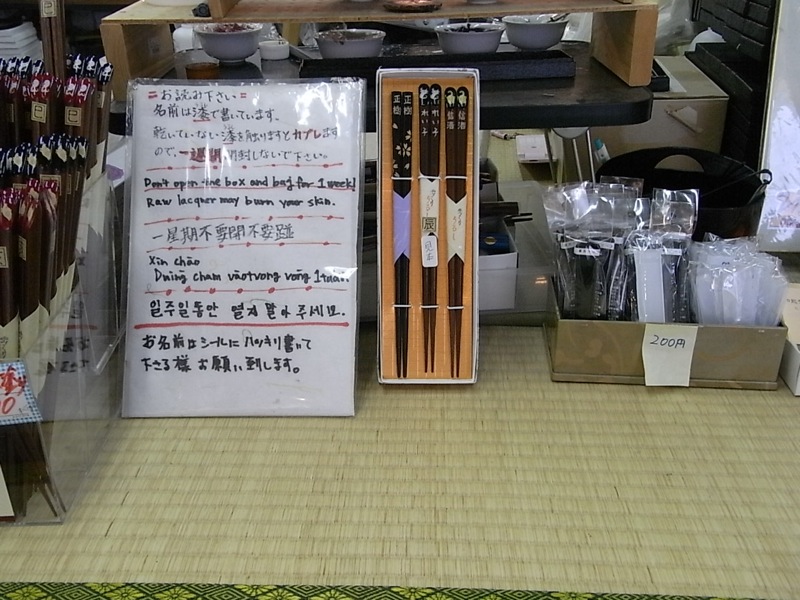 =お読み下さい=
名前は漆で書いています。
乾いていない漆を触りますとカブレます
ので、一週間開封しないで下さい。
Don't open the box and bag for 1 week!
Raw lacquer may burn your skin.
一星期不要開不要踫
Xin chāo
Dùng cham vāotvong vong 1tuần.
일주일동안 열지 말아 주세요.
お名前はシールにハッキリ書いて
下さる様お願い致します。
正樹
正樹
れい子
れい子
辰
見本
200円
巳